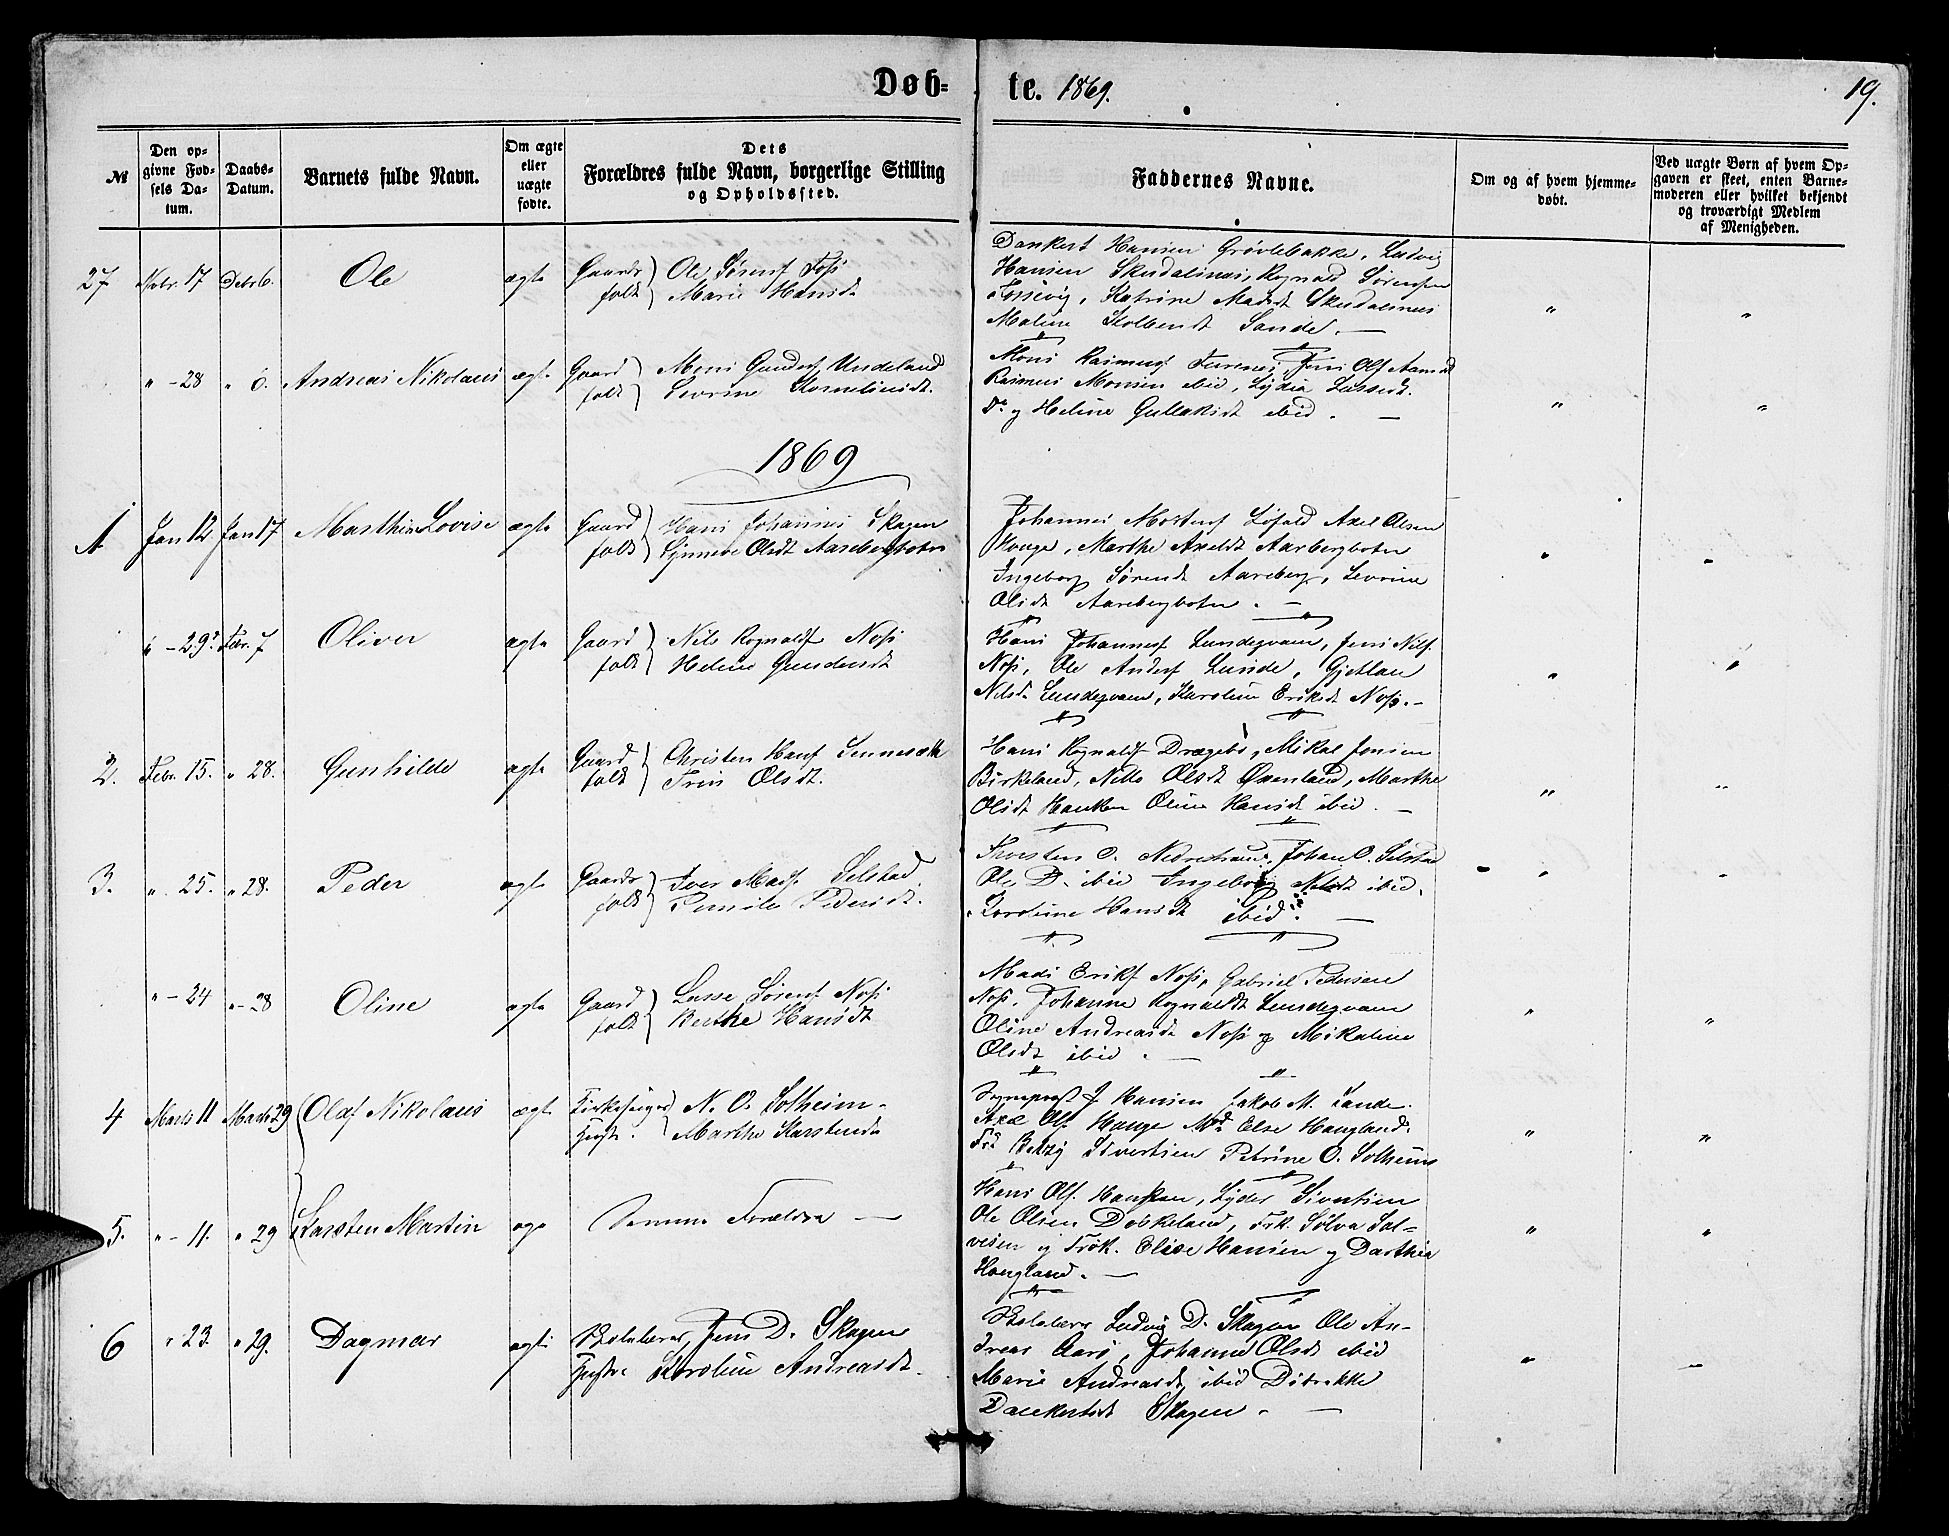 Døb-
te. 1869.
19.
№
Den op-
givne Fød-
sels Da-
tum.
Daabs-
Datum.
Barnets fulde Navn.
Om ægte
eller
uægte
fødte.
Dets
Forældres fulde Navn, borgerlige Stilling
og Opholdssted.
Faddernes Navne.
Om og af hvem hjemme-
døbt.
Ved uægte Børn af hvem Op-
gaven er skeet, enten Barne-
moderen eller hvilket bekjendt
og troværdigt Medlem
af Menigheden.
27 Novbr. 17 Decbr 6. Ole ægte Gaards Ole Sørensf
folk Marie Hansdt
Dankert Hansen Grøvlebakke, Ludvig
Hansen Rognald Sørensen
Katrine Madsdt
Maline Sande. —
" - 28 " 6. Andreas Nikolaus ægte Gaard Mons Undeland
folk Sevrine Korneliusdt.
Mons Rasmusf Furenes, Jens Olsf Aamod
Rasmus Monsen ibid, Lydia Lassedt.
Do og Heline Gullaksdt ibid. —
1869
1 Jan 12 Jan 17 Marthe Lovise ægte Gaard Hans Johannes Skagen
folk Synneve Olsdt Aarebergboten
Johannes Løfald Axel Olsen
Hauge, Marthe Axeldt Aarbergboten
Ingeborg Sørensdt Aareberg, Sevrine
Olsdt Aarebergboten. —
" - 29 Febr. 7 Oliver ægte Gaard Nils Rognaldsf
folk Heline Gundersdt
Hans Johannesf Lundeqvam, Jens Nilsf.
Ole Andersf Lunde,
Nilsdt Lundeqvam, Karoline Eriksdt
2. Febr. 15. " 28. Gunhilde ægte Gaard Christen Hansf
folk Trine Olsdt.
Hans Rognaldsf Drægebø, Mikal Jensen
Birkeland, Nille Olsdt Oxenland, Marthe
Olsdt Hankan Oline Hansdt ibid. —
3. " 25. " 28. Peder ægte Gaards Iver Madsf. Selstad
folk Pernile Pedersdt.
Thorsten O. Johan O. Selstad
Ole D. ibid Ingeborg Nilsdt ibid.
Karoline Hansdt ibid. —
" - 24 " - 28 Oline ægte Gaard Lasse Sørensf
folk Berthe Hansdt
Mads Eriksf Gabriel Pedersen
Johanne Rognaldsdt Lundeqvam
Oline Andreasdt og Mikaline
Olsdt ibid. —
4 Marts 11 Marts 29 Olaf Nikolaus ægte Kirkesanger N. O. Solheim
Hustr. Marthe Karstensdt
Sogneprest J Hansen Jakob M. Sande.
Axel Olsf Hauge Md Else Haugland.
Frk Betzy Sivertsen Petrine O. Solheim
5. " - 11. " 29 Karsten Martin ægte Samme Forældre —
Hans Olsf. Hankan, Lyder Sivertsen
Ole Olsen Døskeland, Frk. Sølva Sal-
vesen og Frøk. Elise Hansen og Dorthea
Haugland. —
6 " 23. " 29. Dagmar ægte Skolelærer, Jens D. Skagen
Hustru Karoline Andreasdt.
Skolelærer Ludvig D. Skagen Ole An-
dreas Aarø, Johanne Olsdt ibid
Marie Andreasdt ibid Diderikke
Dankertsdt Skagen. —